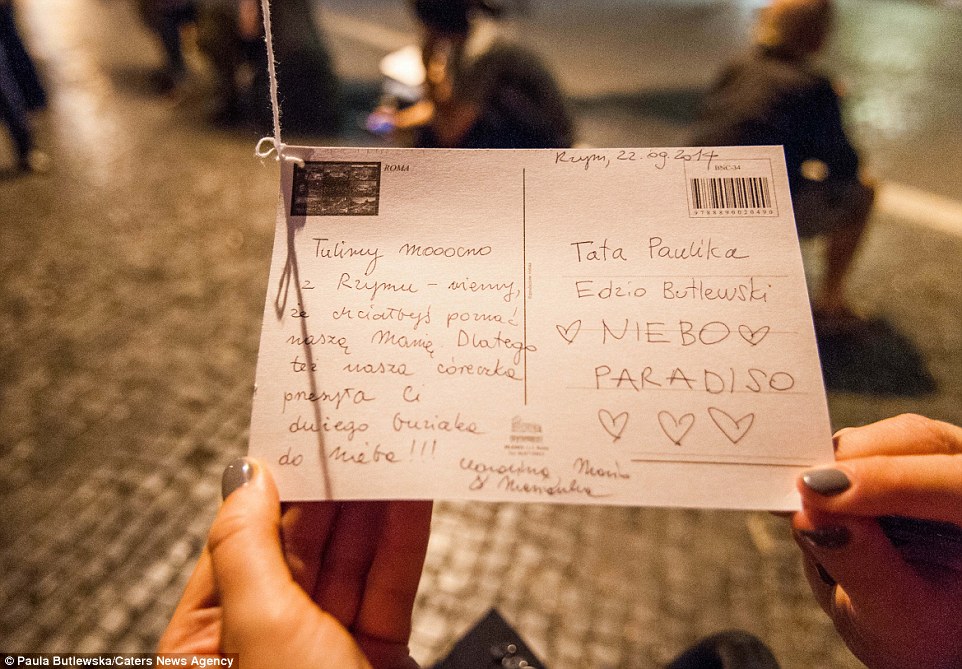 ROMA
Rzym, 22.09.2014
BNC-34
9788890020490
Tulimy mooocno
z Rzymu - wiemy,
że chciałbyś poznać
naszą Manię. Dlatego
też nasza córeczka
przesyła Ci
dużego buziaka
do nieba!!!
Tata Paulika
Edzio Butlewski
♡ NIEBO ♡
PARADISO
♡ ♡ ♡
Mania
&
© Paula Butlewska/Caters News Agency